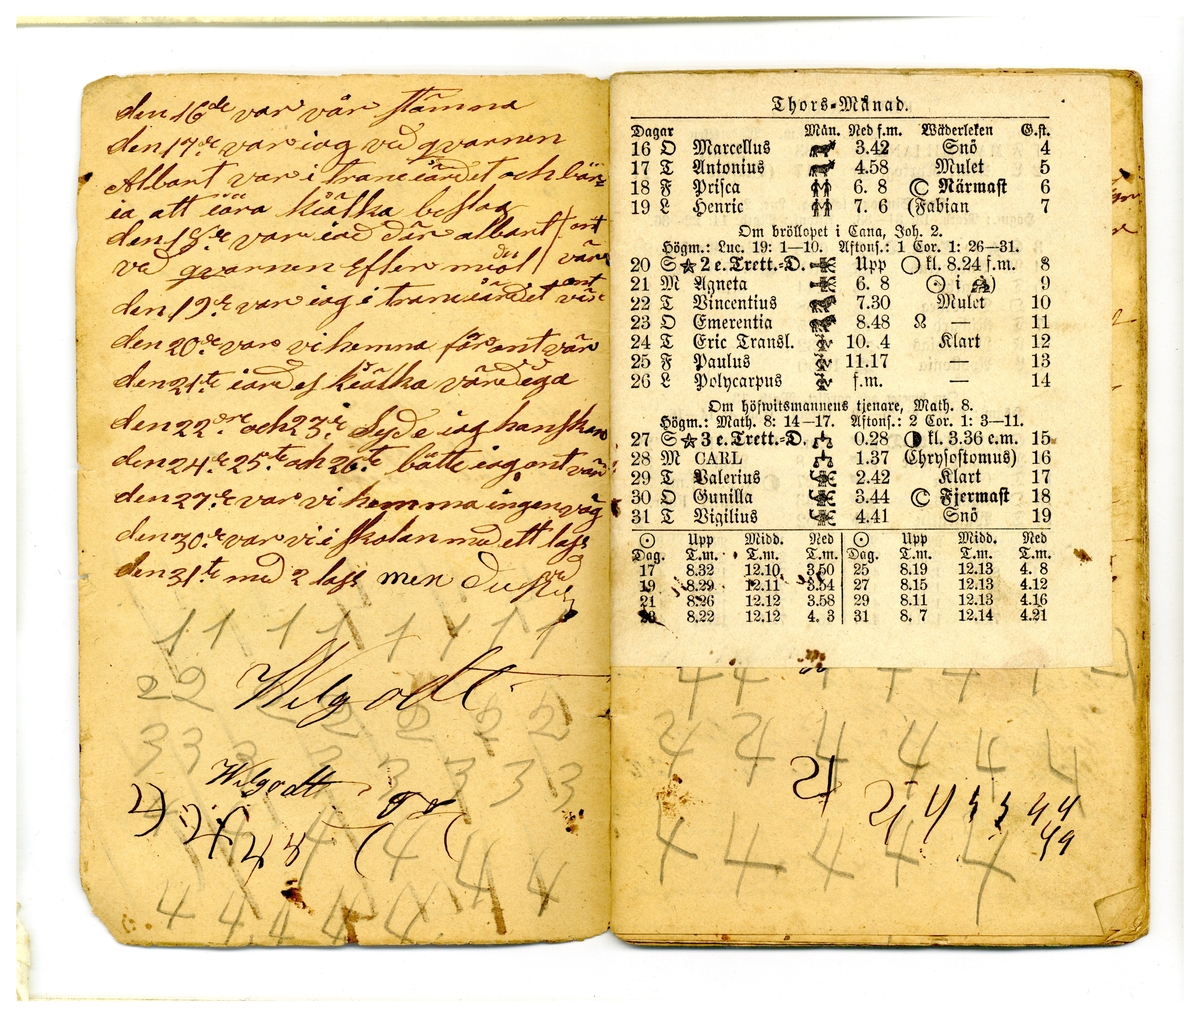 den 16de var vår stämma
den 17de var iag ved qvarnen
Albart var i traneiärdet och bär
ia att iära kiälka beslag
den 18de var iag där albart ont
ved qvarnen efter miöl vär
den 19de var iag i traneiärdet ont
den 20de var vi hemma för ont vär
den 21te
den 22dre och 23de Sydde iag
den 24de 25te och 26te iag ont vär
den 27de var vi hemma ingen väg
den 30de var vi i skolan med ett lass
den 31te med 2 lass men
1 1 1 1 1 1 1 1
Wilgodt
2 2 2 2 2 2 2
3 3 3 3 3 3 3 3
Wilgodt
4 4 4 4 4
4 4 4 4 4
Thors-Månad.
Dagar Mån. Ned f.m. Wäderleken G.st.
16 O Marcellus 3.42 Snö 4
17 T Antonius 4.58 Mulet 5
18 F Prisca 6. 8 Närmast 6
19 L Henric 7. 6 (Fabian 7
Om bröllopet i Cana, Joh. 2.
Högm.: Luc. 19: 1—10. Aftons.: 1 Cor. 1: 26—31.
20 S 2 e. Trett.-D. Upp kl. 8.24 f.m. 8
21 M Agneta 6. 8 ☉ i ♒) 9
22 T Vincentius 7.30 Mulet 10
23 O Emerentia 8.48 ☊ — 11
24 T Eric Transl. 10. 4 Klart 12
25 F Paulus 11.17 — 13
26 L Polycarpus f.m. — 14
Om höfwitsmannens tjenare, Math. 8.
Högm.: Math. 8: 14—17. Aftons.: 2 Cor. 1: 3—11.
27 S 3 e. Trett.-D. 0.28 kl. 3.36 e.m. 15
28 M CARL 1.37 Chrysostomus) 16
29 T Valerius 2.42 Klart 17
30 O Gunilla 3.44 Fjermast 18
31 T Vigilius 4.41 Snö 19
☉ Upp Midd. Ned ☉ Upp Midd. Ned
Dag. T.m. T.m. T.m. Dag. T.m. T.m. T.m.
17 8.32 12.10 3.50 25 8.19 12.13 4. 8
19 8.29 12.11 3.54 27 8.15 12.13 4.12
21 8.26 12.12 3.58 29 8.11 12.13 4.16
23 8.22 12.12 4. 3 31 8. 7 12.14 4.21
4 4 4 4 4 4
4 4 4 4 4 4
4 4 4 4 4